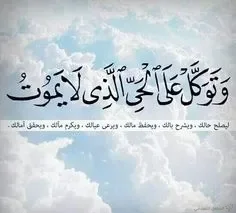 وَتَوَكَّلْ عَلَى ٱلْحَيِّ ٱلَّذِى لَا يَمُوتُ
ليصلح حالك ، ويشرح بالك ، ويحفظ مالك ، ويرعى عيالك ، ويكرم مآلك ، ويحقق آمالك .